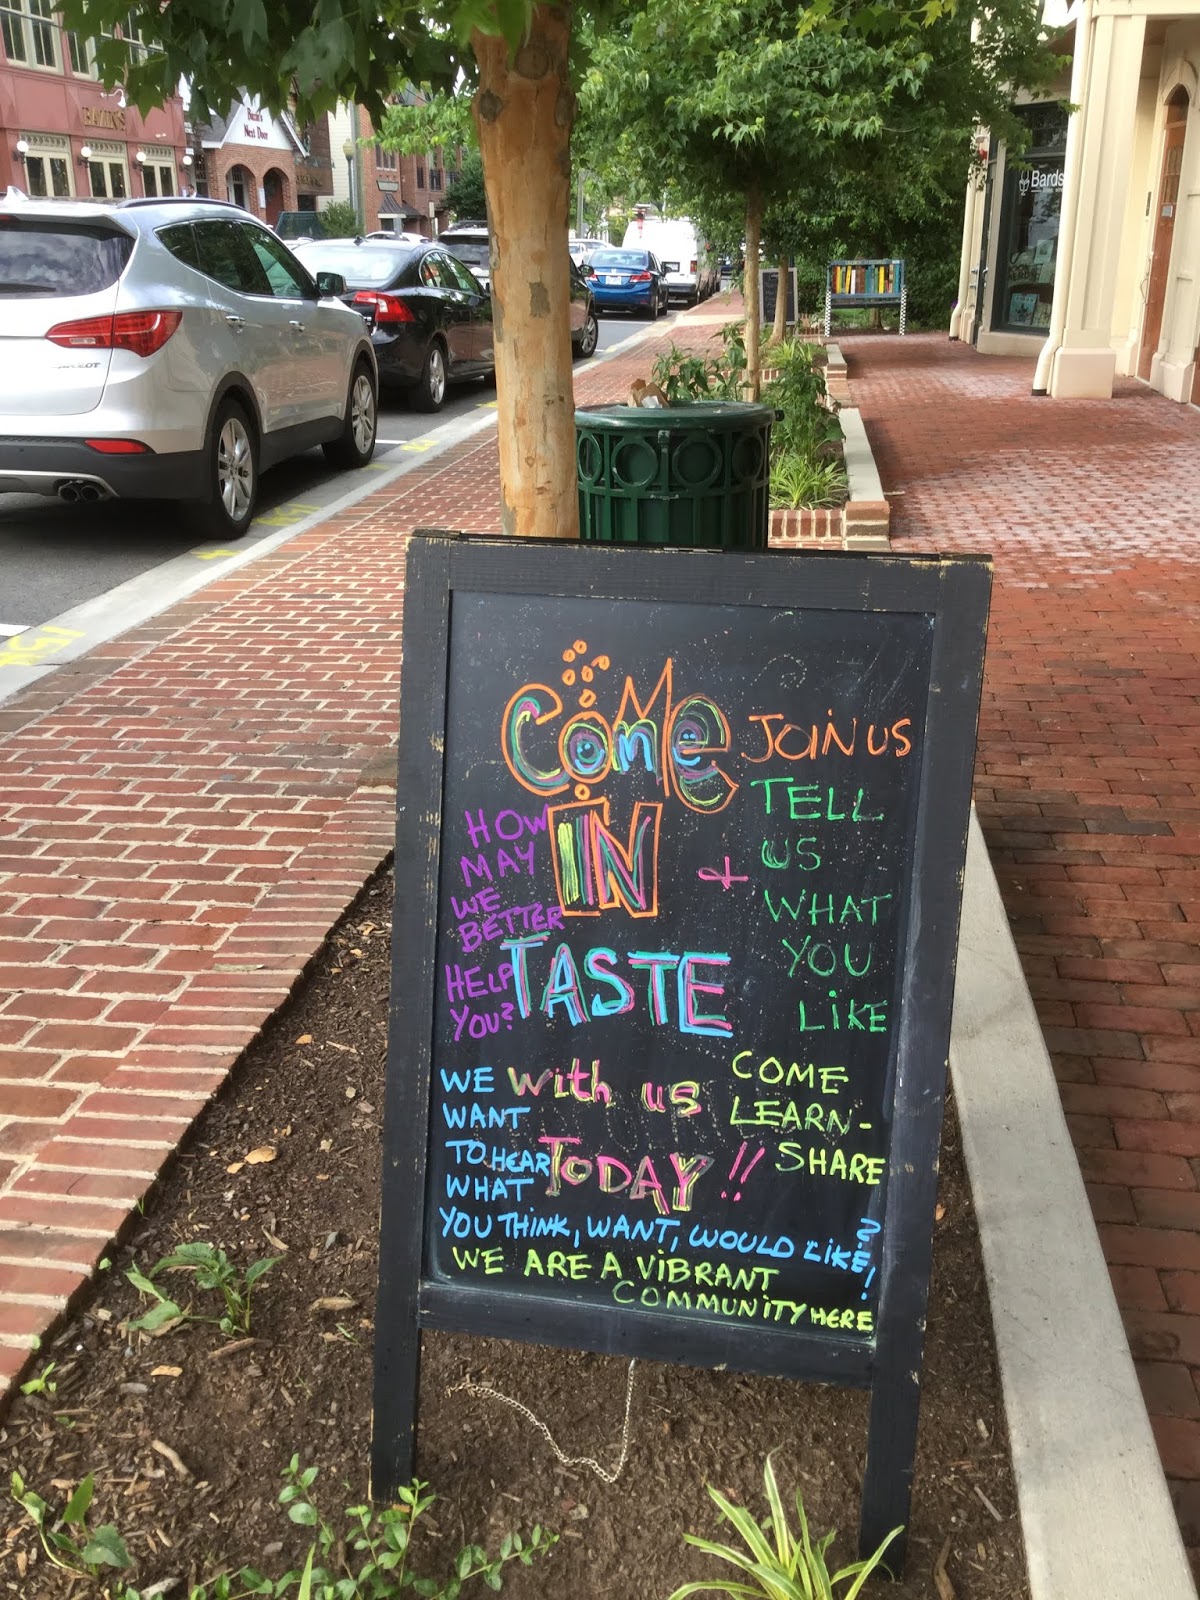 BAZIN'S
Bazin's
Next Door
Bards
COME
IN
+
TASTE
with us
TODAY!!
JOIN US
TELL
US
WHAT
YOU
LIKE
HOW
MAY
WE
BETTER
HELP
YOU?
COME
LEARN-
SHARE
WE
WANT
TO HEAR
WHAT
YOU THINK, WANT, WOULD LIKE?!
WE ARE A VIBRANT
COMMUNITY HERE